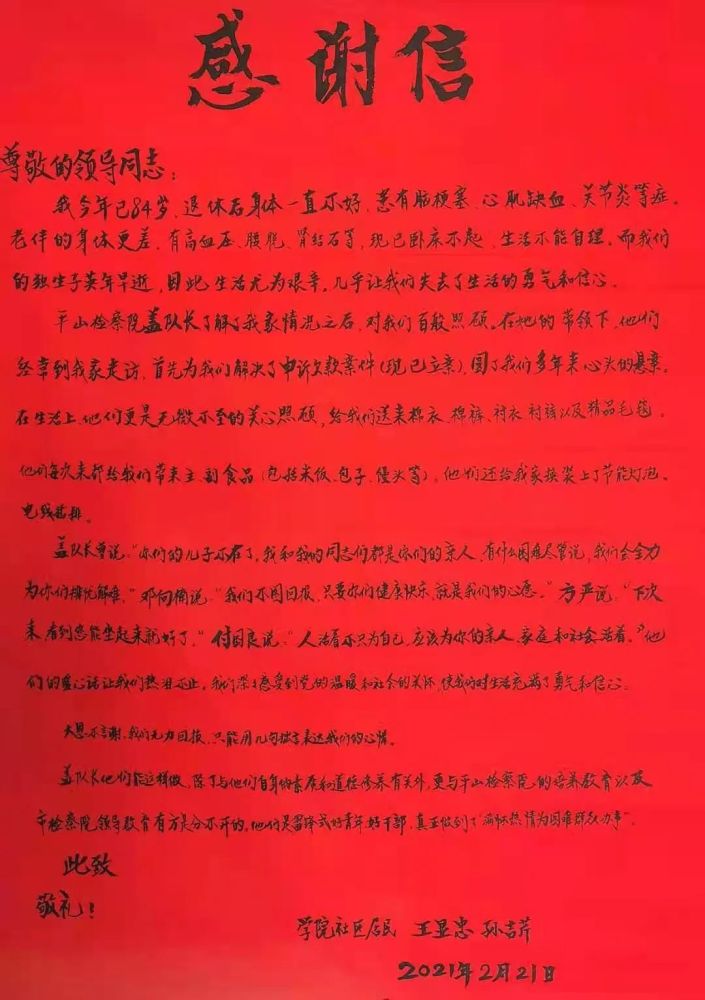 感谢信
尊敬的领导同志：
我今年已84岁，退休后身体一直不好，患有脑梗塞、心肌缺血、关节炎等症。
老伴的身体更差，有高血压、腰脱、肾结石等，现已卧床不起，生活不能自理。而我们
的独生子英年早逝，因此生活尤为艰辛，几乎让我们失去了生活的勇气和信心。
平山检察院盖队长了解了我家情况之后，对我们百般照顾。在他的带领下，他们
经常到我家走访，首先为我们解决了申诉欠款案件(现已立案)，圆了我们多年来心头的悬案。
在生活上，他们更是无微不至的关心照顾，给我们送来棉衣、棉裤、衬衣、衬裤以及精品毛毯。
他们每次来都给我们带来主、副食品(包括米饭、包子、馒头等)，他们还给我家换装上了节能灯泡、
电线插排。
盖队长曾说："你们的儿子不在了，我和我的同志们都是你们的亲人，有什么困难尽管说，我们会全力
为你们排忧解难。"邓向楠说："我们不图回报，只要你们健康快乐，就是我们的心愿。"方严说："下次
来，看到您能坐起来就好了。"付国良说："人活着不只为自己，应该为你的亲人、家庭和社会活着。"他
们的暖心话让我们热泪不止，我们深深感受到党的温暖和社会的关怀，使我们对生活充满了勇气和信心。
大恩不言谢，我们无力回报，只能用几句拙言表达我们的心情。
盖队长他们能这样做，除了与他们自身的素质和道德修养有关外，更与平山检察院的培养教育以及
市检察院领导教育有方是分不开的，他们是雷锋式好青年好干部，真正做到了"满怀热情为困难群众办事"。
此致
敬礼！
学院社区居民 王显忠 孙吉芹
2021年2月21日